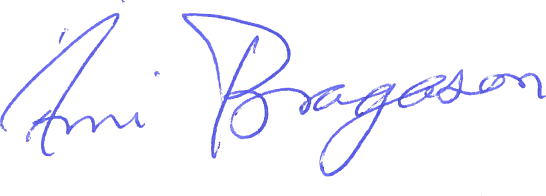 Árni Bragason